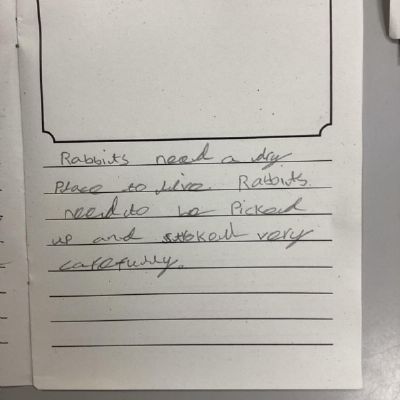 Rabbits need a dry
Place to live. Rabbits
need to be Picked
up and stroked very
carefully.